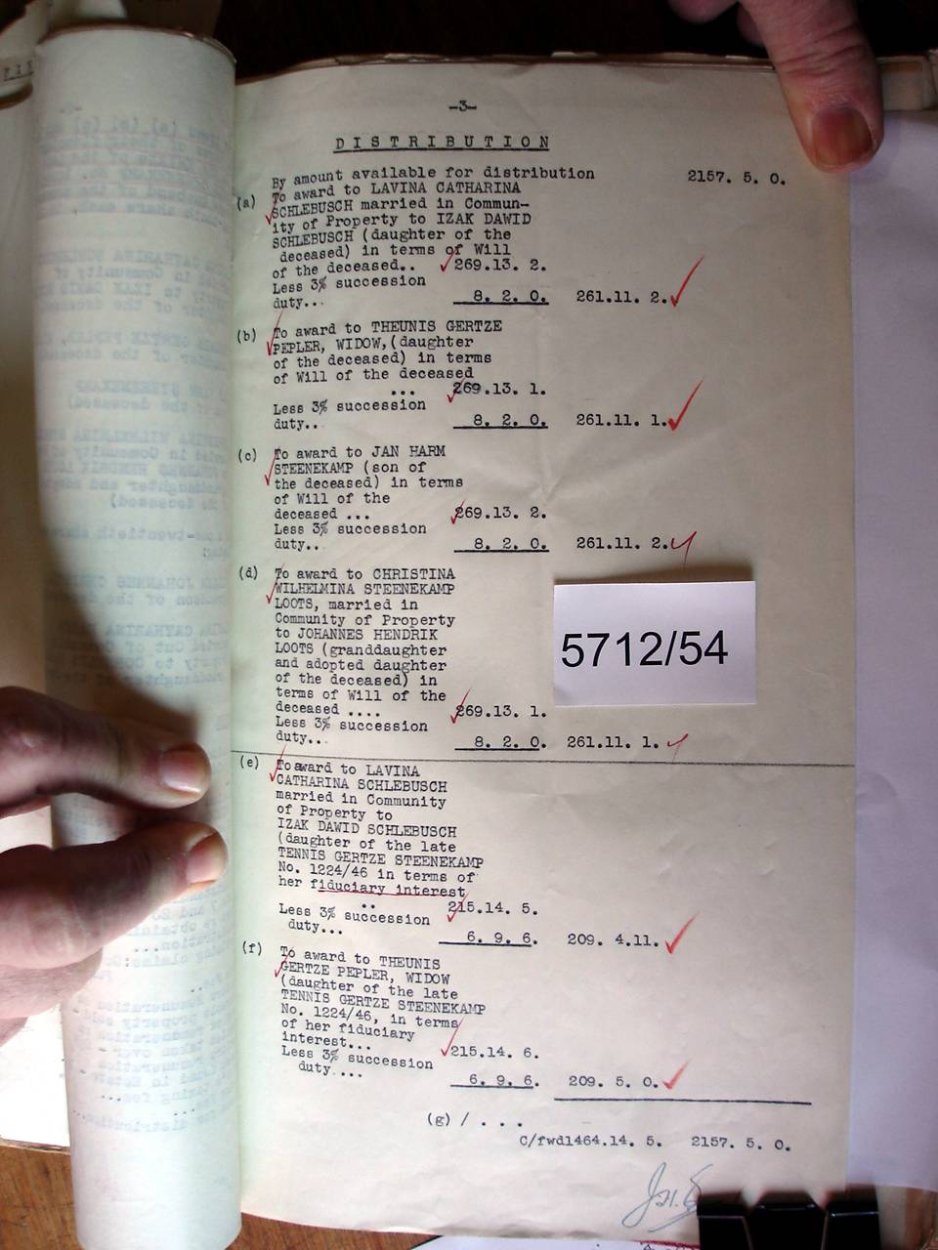 -3-
DISTRIBUTION
By amount available for distribution 2157. 5. 0.
(a) To award to LAVINA CATHARINA
SCHLEBUSCH married in Commun-
ity of Property to IZAK DAWID
SCHLEBUSCH (daughter of the
deceased) in terms of Will
of the deceased.. 269.13. 2.
Less 3% succession
duty... 8. 2. 0. 261.11. 2.
(b) To award to THEUNIS GERTZE
PEPLER, WIDOW, (daughter
of the deceased) in terms
of Will of the deceased
... 269.13. 1.
Less 3% succession
duty.. 8. 2. 0. 261.11. 1.
(c) To award to JAN HARM
STEENEKAMP (son of
the deceased) in terms
of Will of the
deceased ... 269.13. 2.
Less 3% succession
duty.. 8. 2. 0. 261.11. 2.
(d) To award to CHRISTINA
WILHELMINA STEENEKAMP
LOOTS, married in
Community of Property
to JOHANNES HENDRIK
LOOTS (granddaughter
and adopted daughter
of the deceased) in
terms of Will of the
deceased .... 269.13. 1.
Less 3% succession
duty... 8. 2. 0. 261.11. 1.
5712/54
(e) To award to LAVINA
CATHARINA SCHLEBUSCH
married in Community
of Property to
IZAK DAWID SCHLEBUSCH
(daughter of the late
TENNIS GERTZE STEENEKAMP
No. 1224/46 in terms of
her fiduciary interest
.. 215.14. 5.
Less 3% succession
duty... 6. 9. 6. 209. 4.11.
(f) To award to THEUNIS
GERTZE PEPLER, WIDOW
(daughter of the late
TENNIS GERTZE STEENEKAMP
No. 1224/46, in terms
of her fiduciary
interest... 215.14. 6.
Less 3% succession
duty.... 6. 9. 6. 209. 5. 0.
(g) / . . .
C/fwd1464.14. 5. 2157. 5. 0.